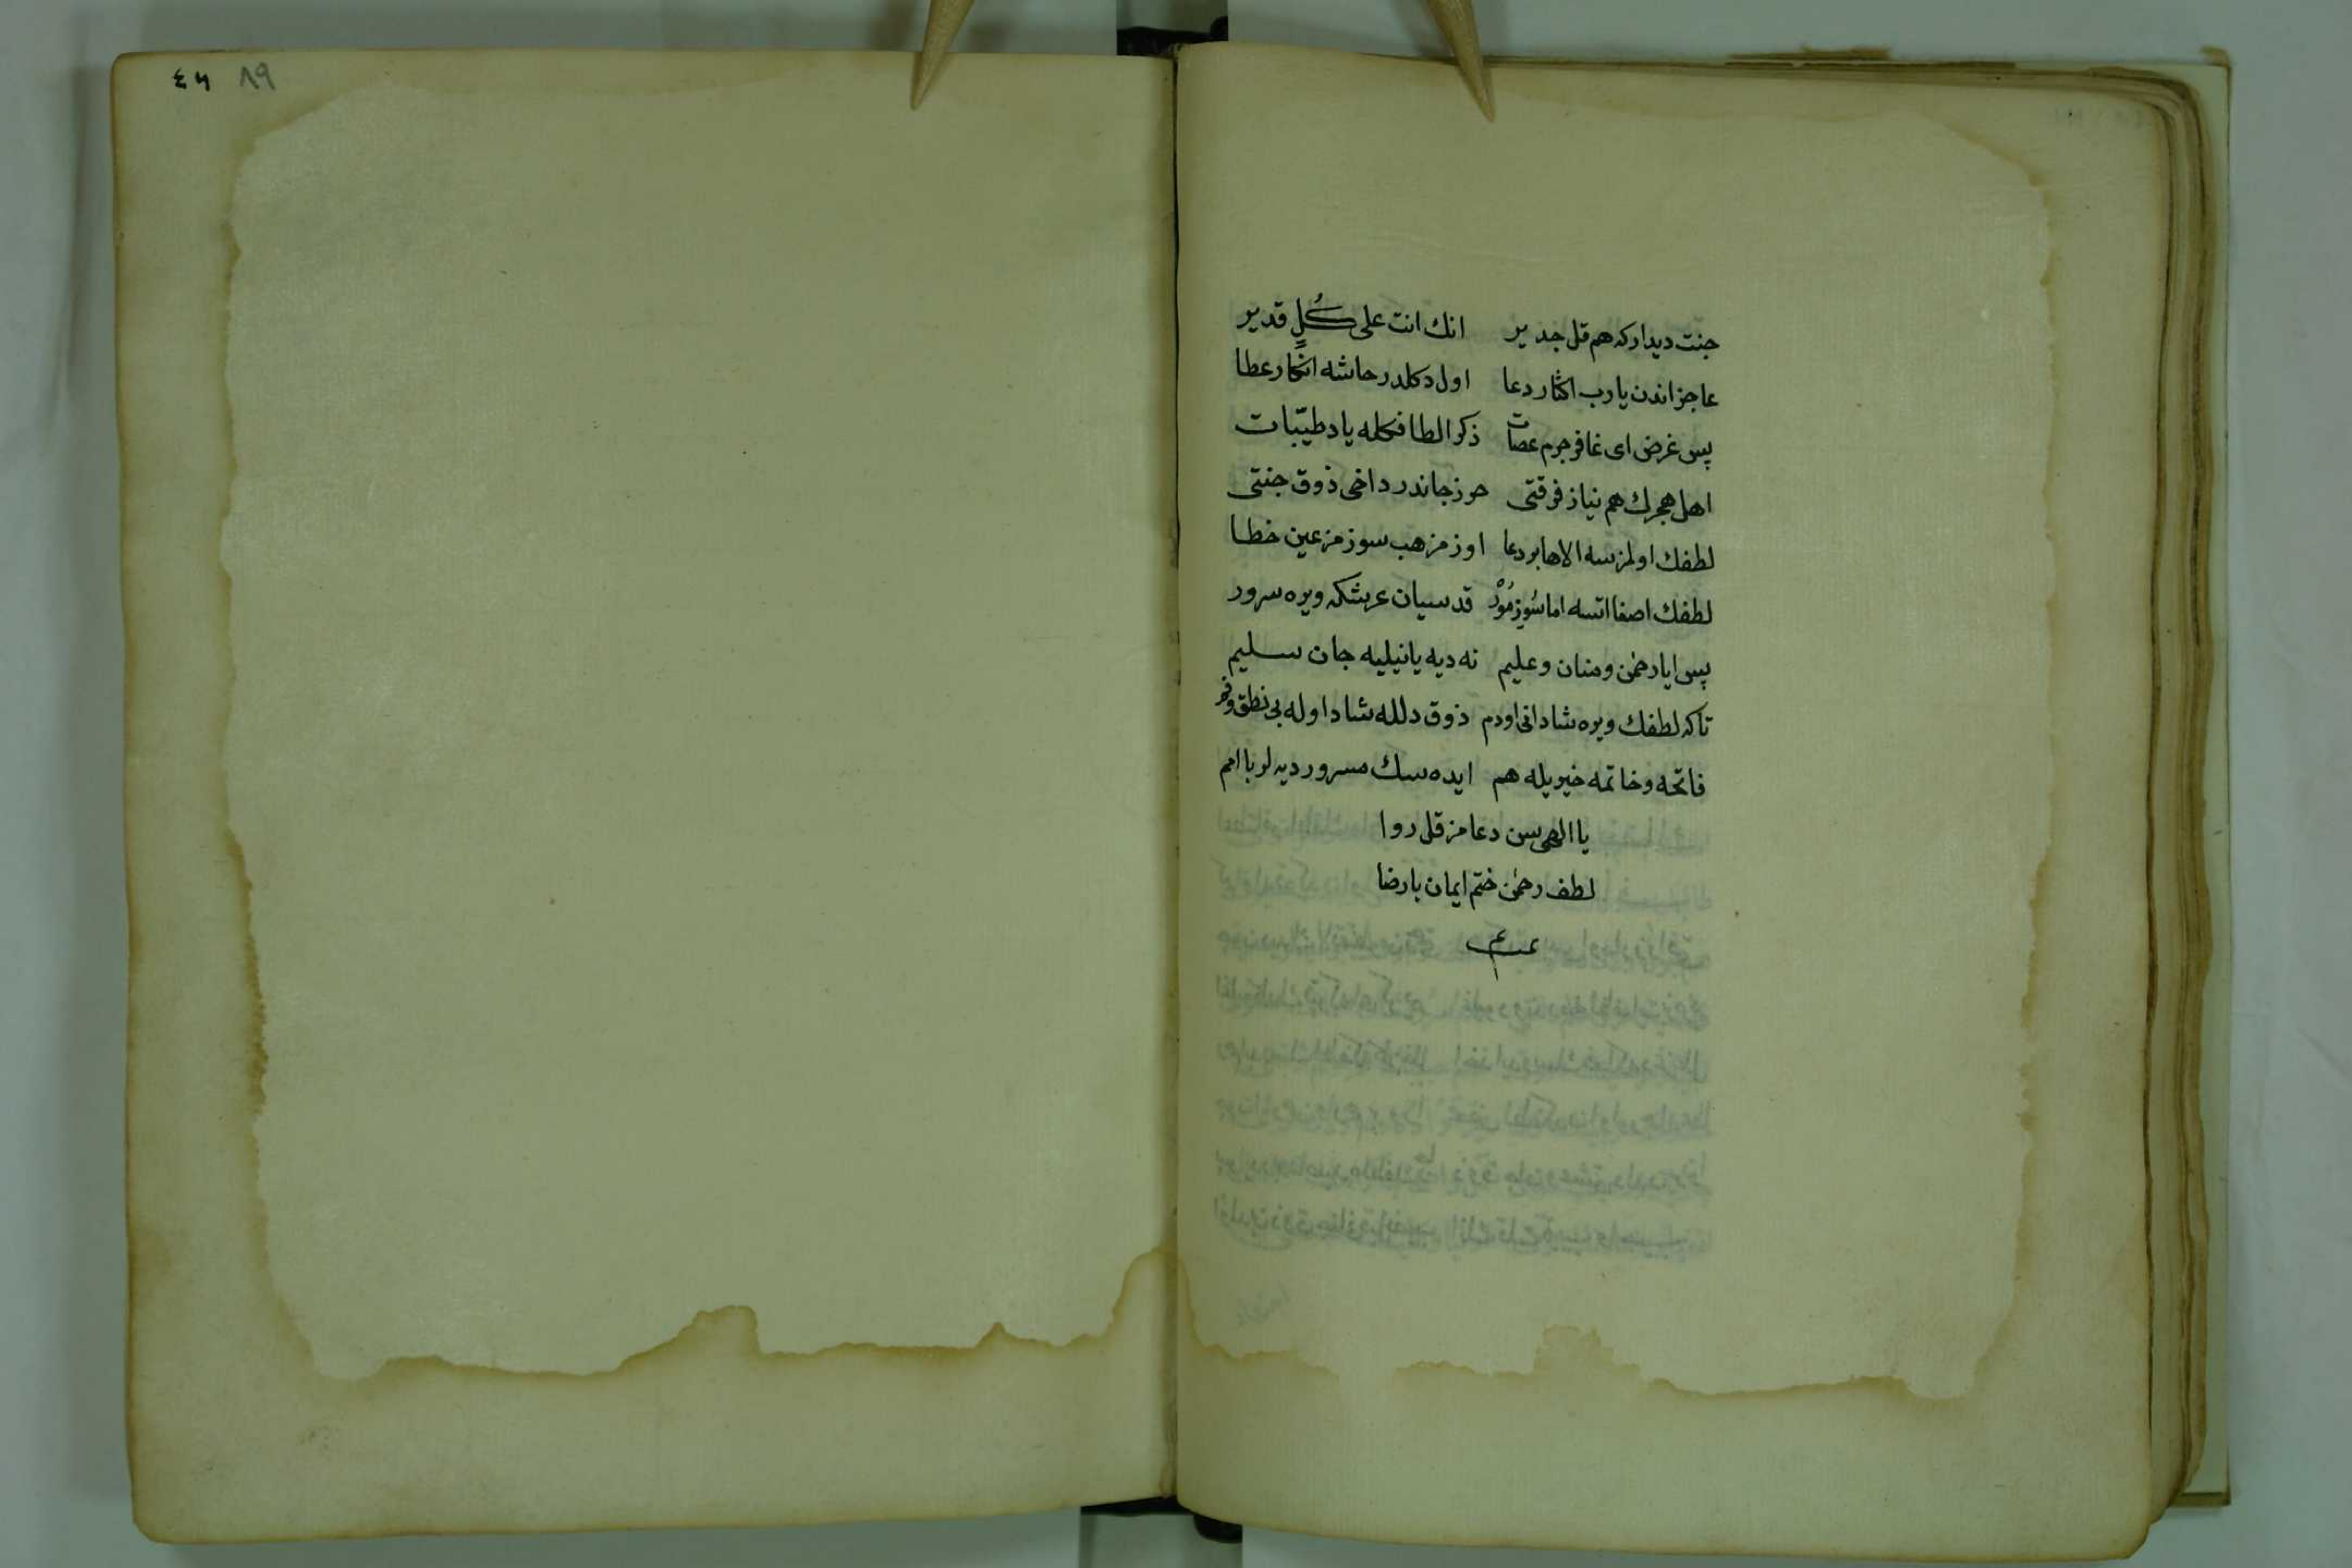 جنت ديداركه هم قل جدير   انك انت على كُلٍ قدير
عاجزاندن يا رب اكثار دعا   اول دكلدر حاشه انكار عطا
پس غرض اى غافر جرم عصات   ذكر الطافكله ياد طيّبات
اهل هجرك هم نياز فرقتى   حرز جاندر داخى ذوق جنتى
لطفك اولمزسه الاها بر دعا   اوزمز هب سوزمز عين خطا
لطفك اصغا اتسه اما سُوزمُوزْ   قدسيان عرشكه ويره سرور
پس ايا رحمٰن و منان و عليم   نه ديه يا نيليه جان سليم
تاكه لطفك ويره شادانى اودم   ذوق دلله شاد اوله بى نطق و فم
فاتحه و خاتمه خيريله هم   ايده سك مسرور ديه لر با امم
يا الهى سن دعامز قل روا
لطف رحمٰن ختم ايمان با رضا
٤٦ ٨٩